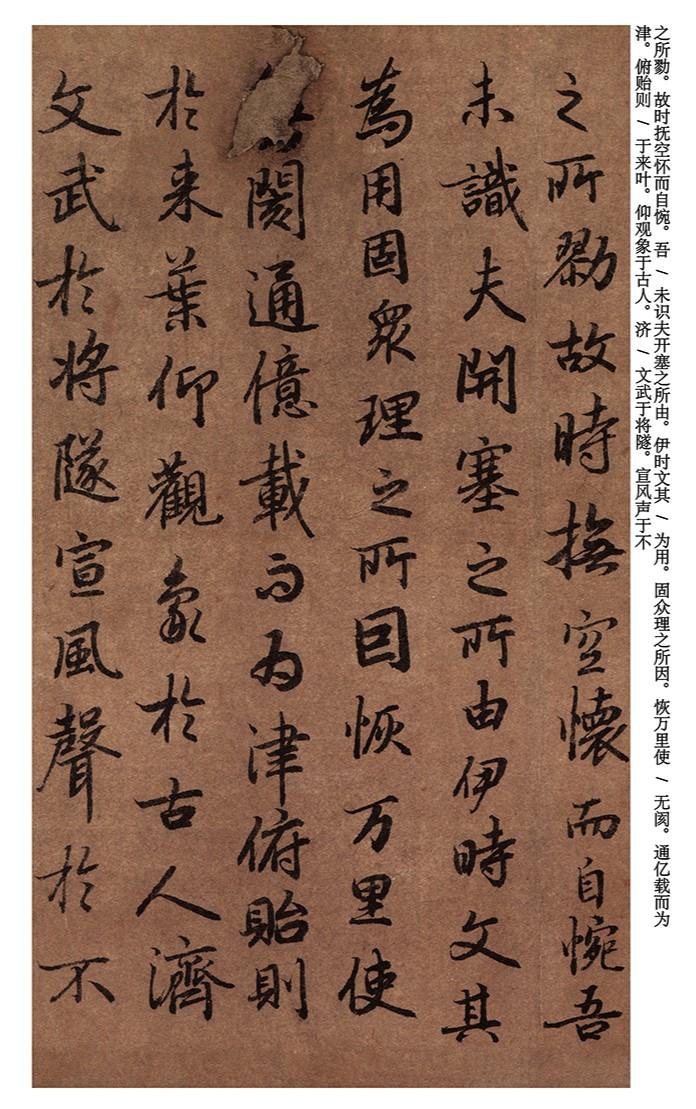 之所勠。故时抚空怀而自惋。吾 / 未识夫开塞之所由。伊时文其 / 为用。固众理之所因。恢万里使 / 无阂。通亿载而为
津。俯贻则 / 于来叶。仰观象于古人。济 / 文武于将隧。宣风声于不
之所勠故時撫空懷而自惋吾
未識夫開塞之所由伊時文其
為用固眾理之所因恢万里使
閡通億載而为津俯貽則
於来葉仰觀象於古人濟
文武於将隧宣風聲於不